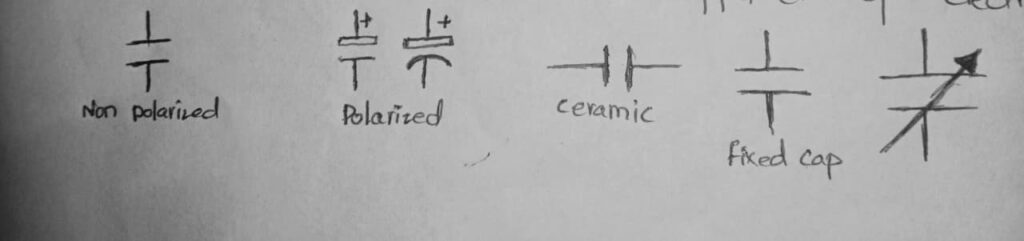 + +
Non polarized
Polarized
ceramic
fixed cap